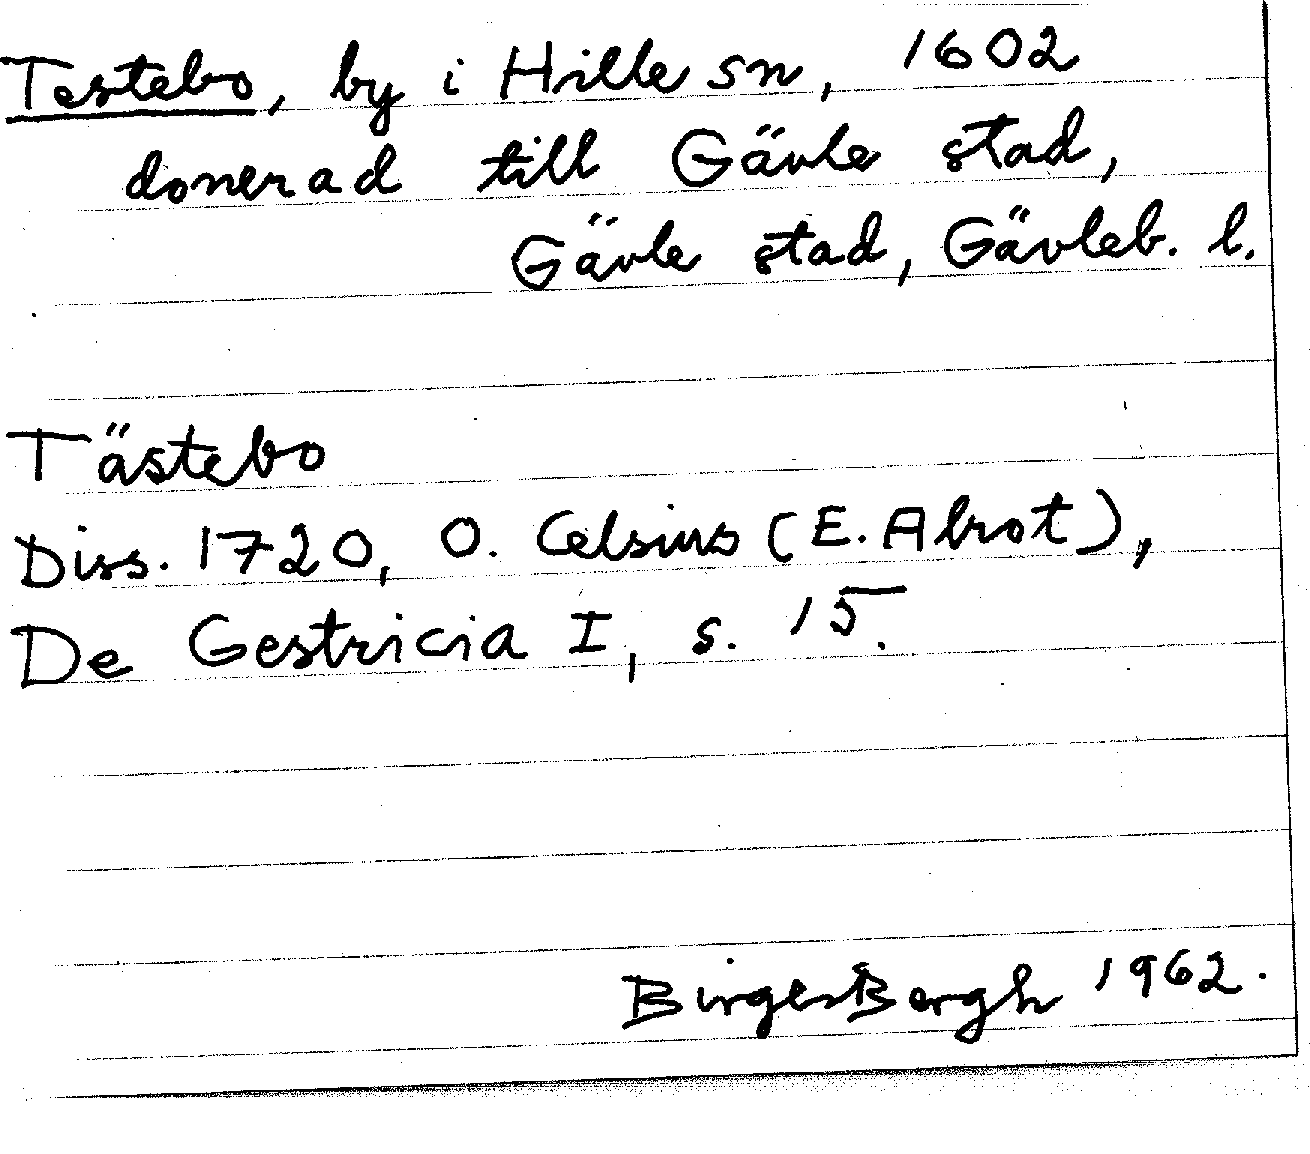 Testebo, by i Hille sn, 1602
donerad till Gävle stad,
Gävle stad, Gävleb. l.
Tästebo
Diss. 1720, O. Celsius (E. Abrot),
De Gestricia I, s. 15.
Birger Bergh 1962.